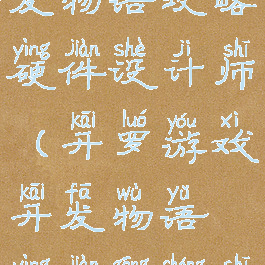 发物语攻略
yìng jiàn shè jì shī
硬件设计师
kāi luó yóu xì
（开罗游戏
kāi fā wù yǔ
开发物语
yìng jiàn gōng chéng shī